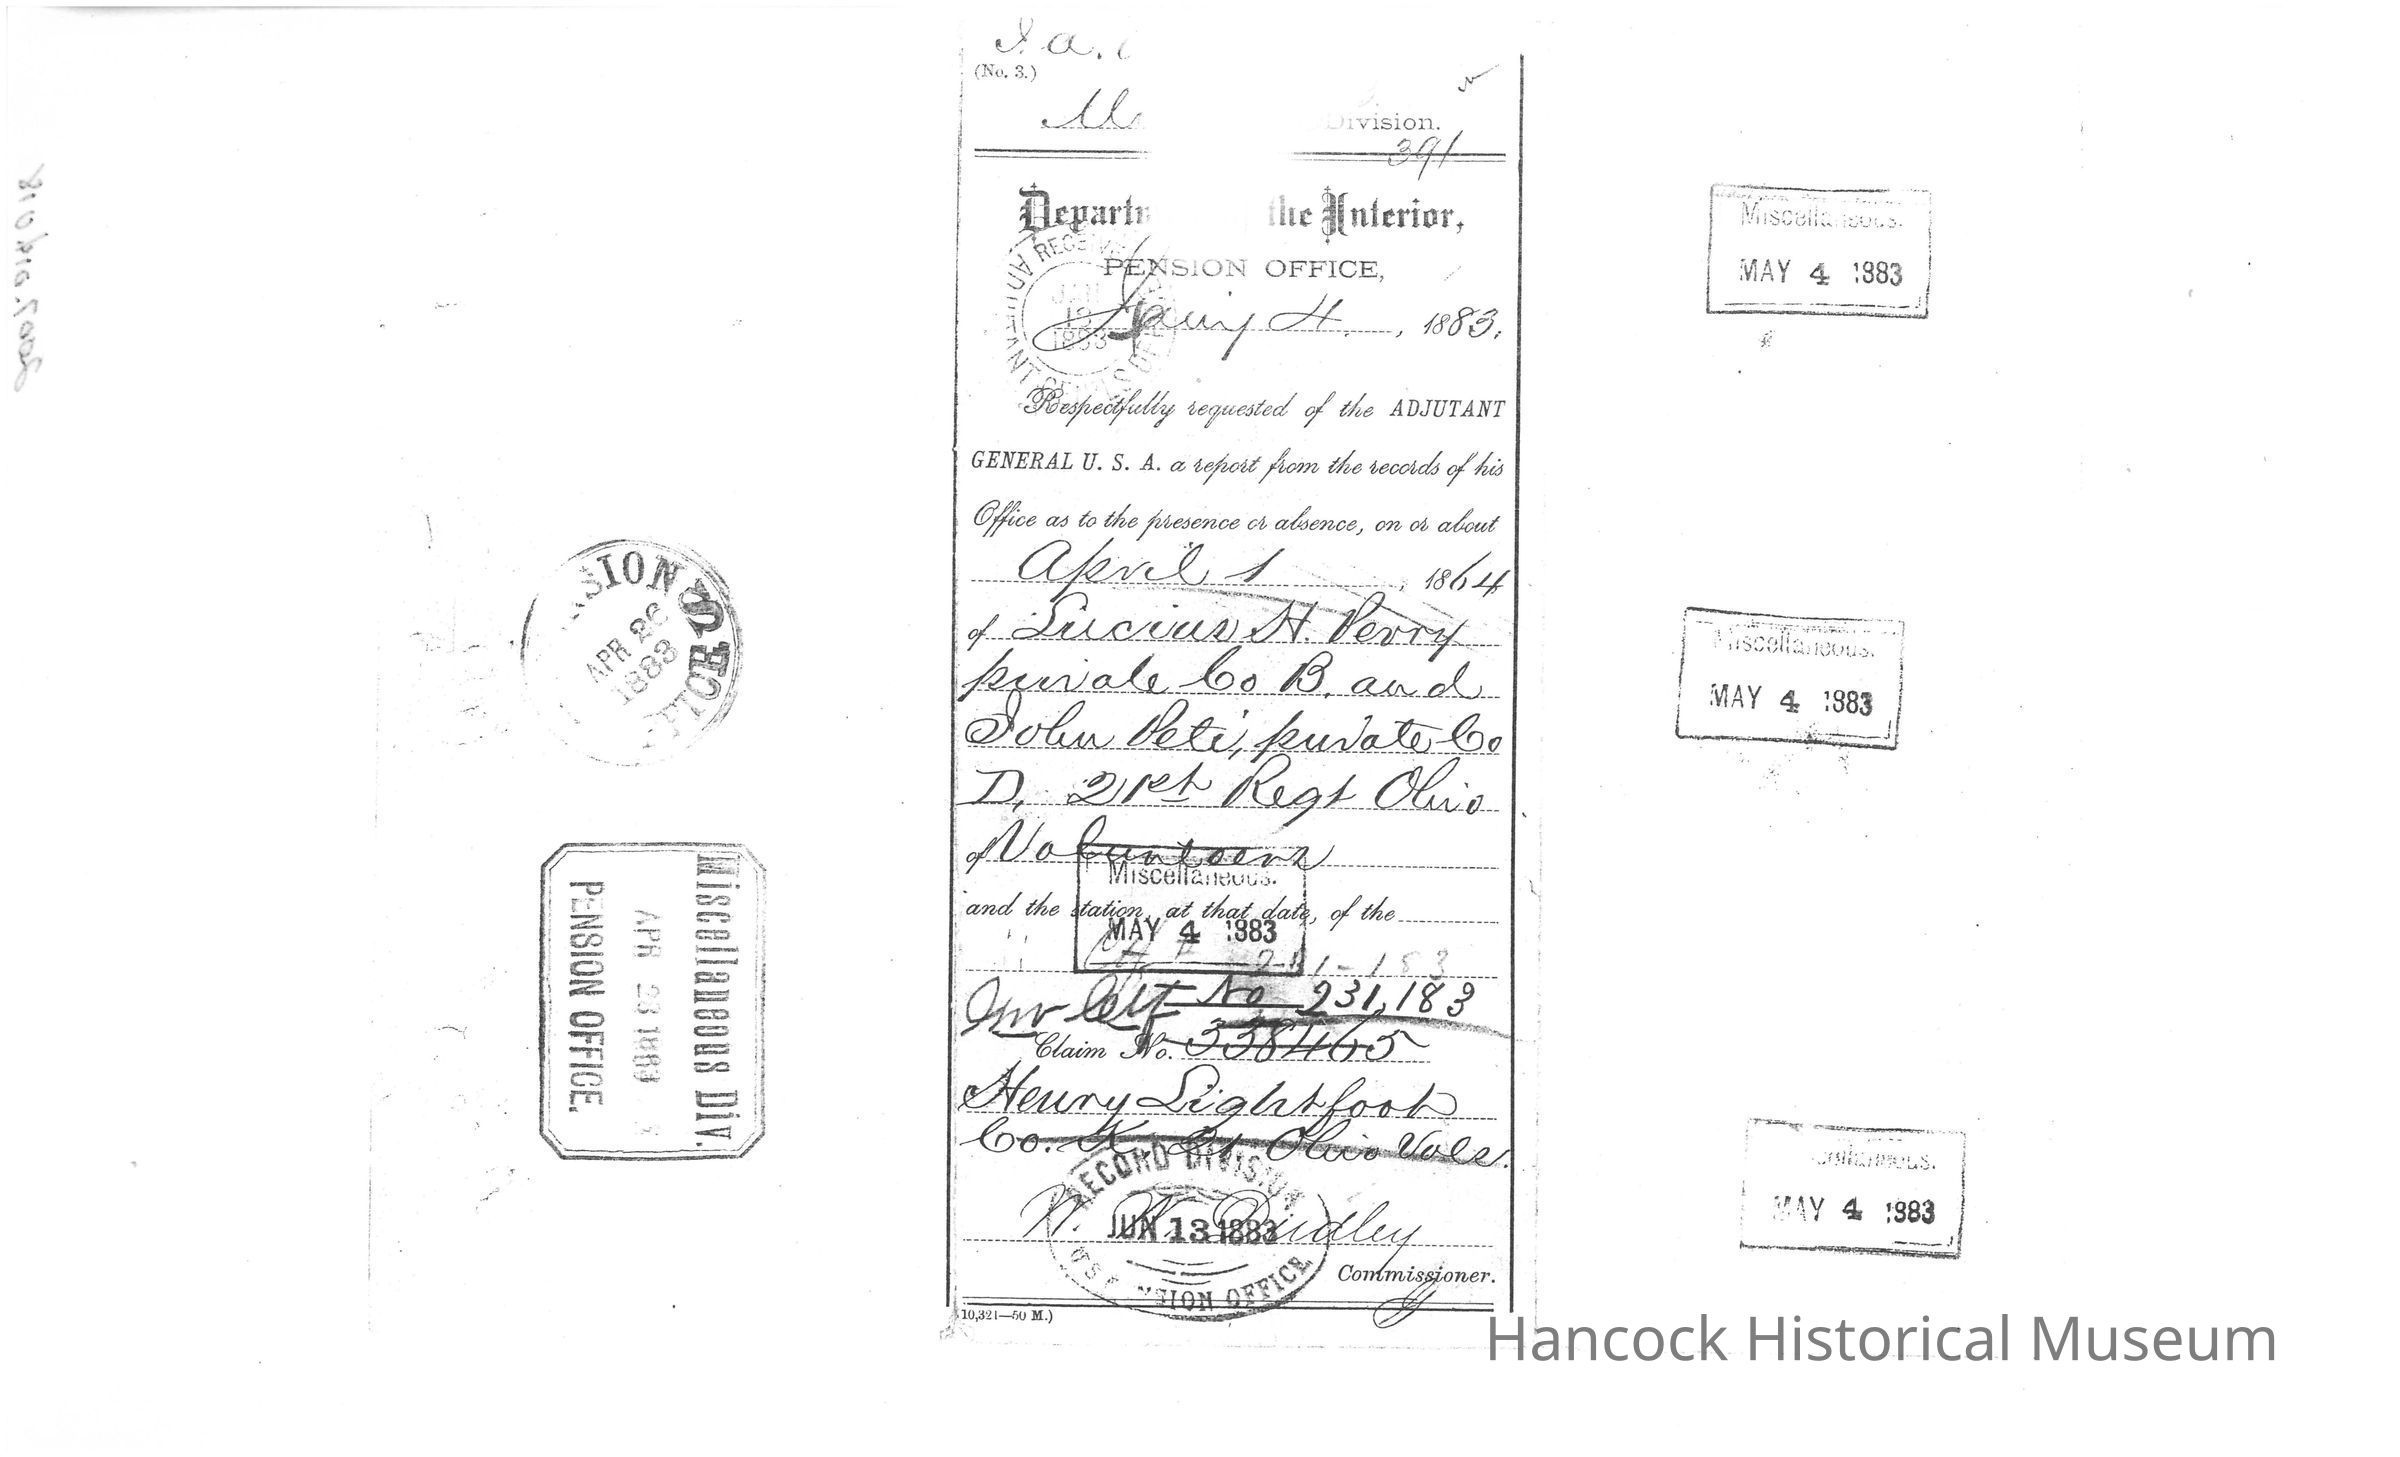 (No. 3.)
Division.
391
the Interior,
PENSION OFFICE,
Jany 4, 1883.
Respectfully requested of the ADJUTANT
GENERAL U. S. A. a report from the records of his
Office as to the presence or absence, on or about
April 1, 1864
of Lucius H. Perry
private Co B. and
John Pete, private Co
D, 21st Regt Ohio
of Volunteers
Miscellaneous.
and the station, at that date, of the
MAY 4 1883
Inv Ctf No 231,183
Claim No. 338465
Henry Lightfoot
Co. K 21 Ohio Vols.
W. W. Dudley
SECOND DIVISION
JUN 13 1883
PENSION OFFICE
Commissioner.
10,321—50 M.)
APR 26
1883
Miscellaneous Div.
APR 28 1883
PENSION OFFICE.
Miscellaneous.
MAY 4 1883
Miscellaneous.
MAY 4 1883
MAY 4 1883
Hancock Historical Museum